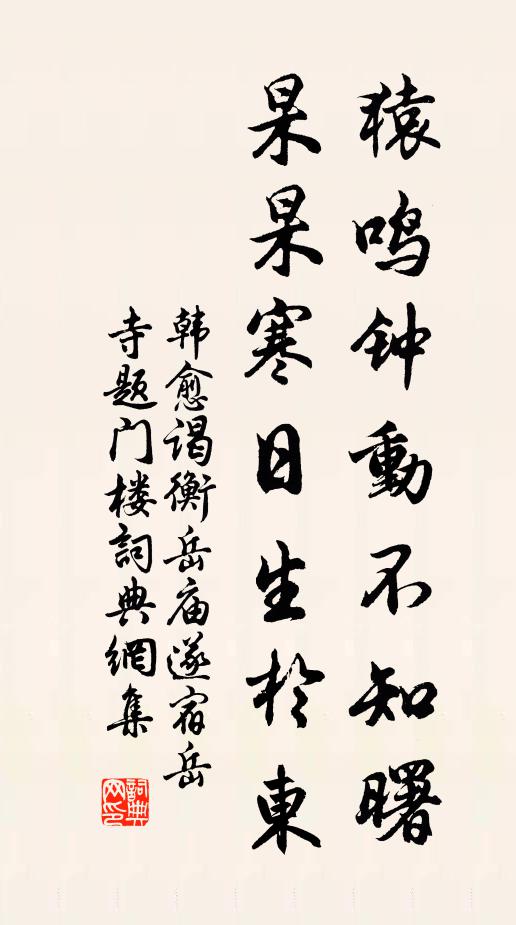 猿鸣钟動不知曙
杲杲寒日生於東
韩愈谒衡岳庙遂宿岳
寺题门楼詞典網集
詞典
网印